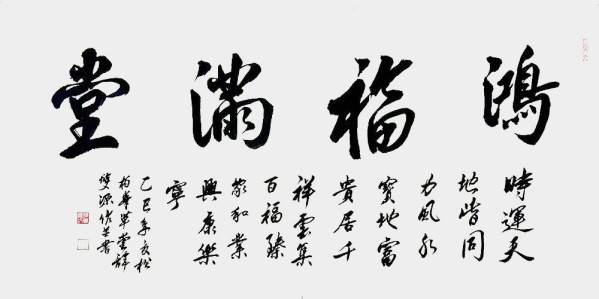 鴻福滿堂
時運天
地皆同
力風水
寶地富
貴居千
祥雲集
百福臻
家和業
興康樂
寧
乙巳年 松
草堂
雙源作 書